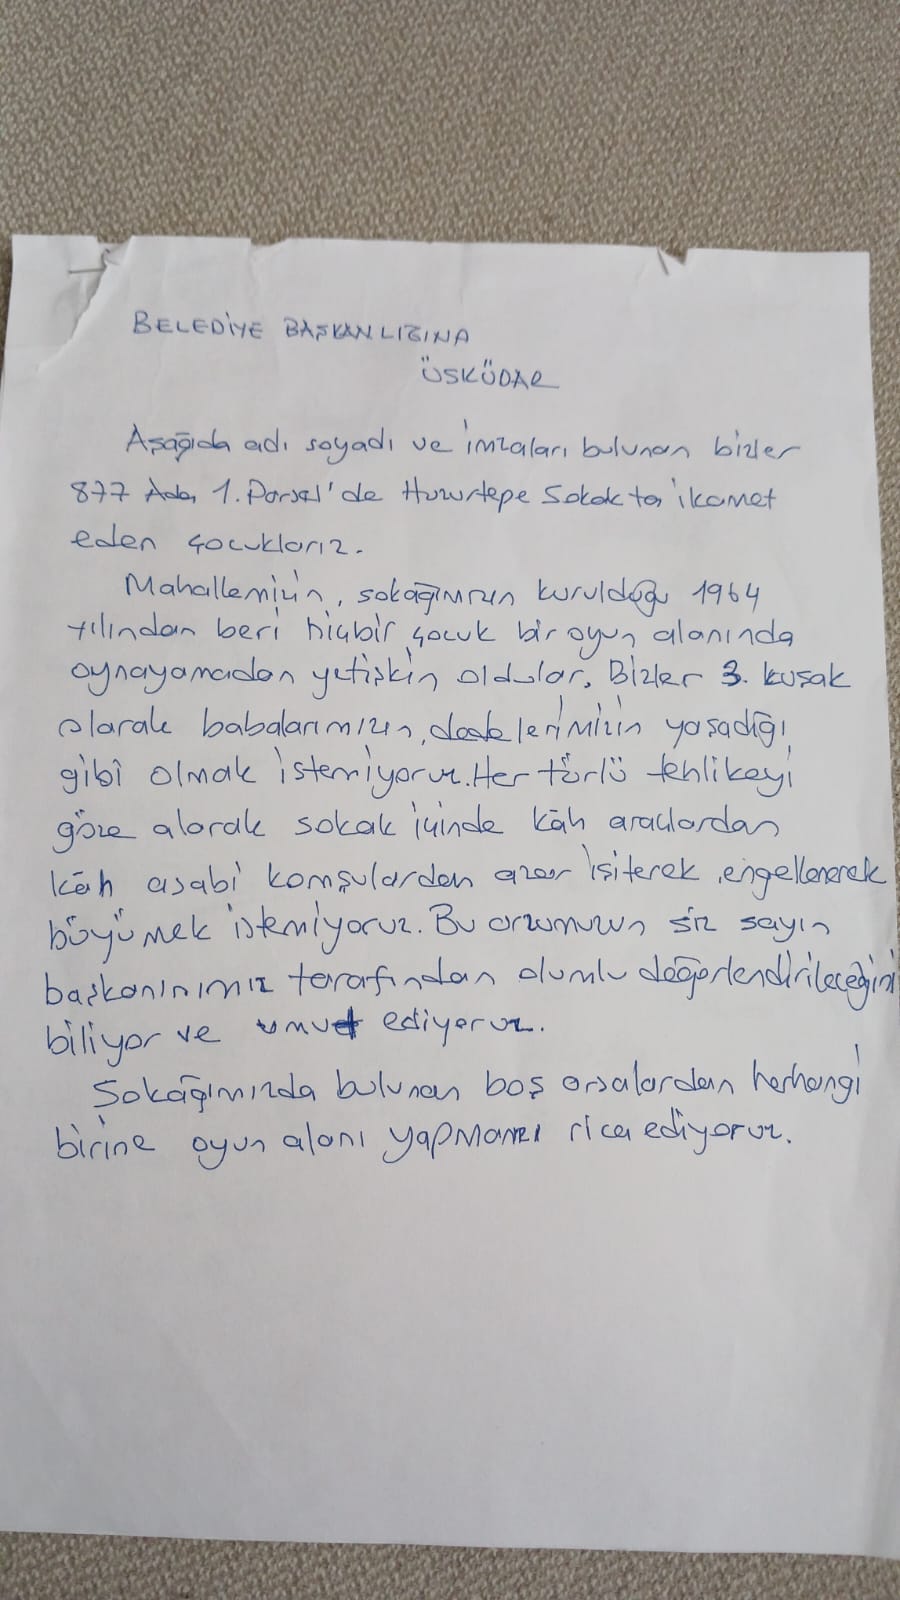 BELEDİYE BAŞKANLIĞINA
ÜSKÜDAR
Aşağıda adı soyadı ve imzaları bulunan bizler
877 Ada, 1. Parsel'de Huzurtepe Sokakta ikamet
eden çocuklarız.
Mahallemizin, sokağımızın kurulduğu 1964
yılından beri hiçbir çocuk bir oyun alanında
oynayamadan yetişkin oldular. Bizler 3. kuşak
olarak babalarımızın, dedelerimizin yaşadığı
gibi olmak istemiyoruz. Her türlü tehlikeyi
göze alarak sokak içinde kâh araçlardan
kâh asabi komşulardan azar işiterek, engellenerek
büyümek istemiyoruz. Bu arzumuzun siz sayın
başkanınımız tarafından olumlu değerlendirileceğini
biliyor ve umut ediyoruz.
Sokağımızda bulunan boş arsalardan herhangi
birine oyun alanı yapmanızı rica ediyoruz.